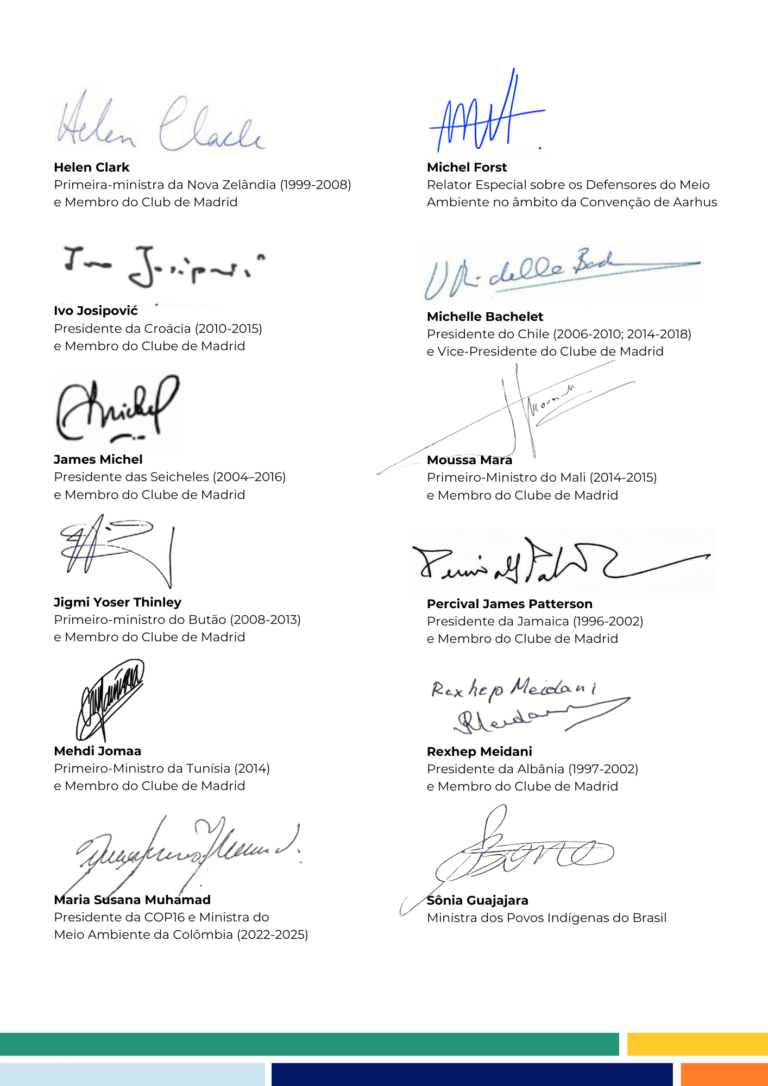 Helen Clark
Helen Clark
Primeira-ministra da Nova Zelândia (1999-2008)
e Membro do Club de Madrid
Michel Forst
Relator Especial sobre os Defensores do Meio
Ambiente no âmbito da Convenção de Aarhus
Ivo Josipović
Presidente da Croácia (2010-2015)
e Membro do Clube de Madrid
Michelle Bachelet
Presidente do Chile (2006-2010; 2014-2018)
e Vice-Presidente do Clube de Madrid
James Michel
Presidente das Seicheles (2004–2016)
e Membro do Clube de Madrid
Moussa Mara
Primeiro-Ministro do Mali (2014-2015)
e Membro do Clube de Madrid
Jigmi Yoser Thinley
Primeiro-ministro do Butão (2008-2013)
e Membro do Clube de Madrid
Percival James Patterson
Presidente da Jamaica (1996-2002)
e Membro do Clube de Madrid
Mehdi Jomaa
Primeiro-Ministro da Tunísia (2014)
e Membro do Clube de Madrid
Rexhep Meidani
Rexhep Meidani
Presidente da Albânia (1997-2002)
e Membro do Clube de Madrid
Maria Susana Muhamad
Presidente da COP16 e Ministra do
Meio Ambiente da Colômbia (2022-2025)
Sônia Guajajara
Ministra dos Povos Indígenas do Brasil